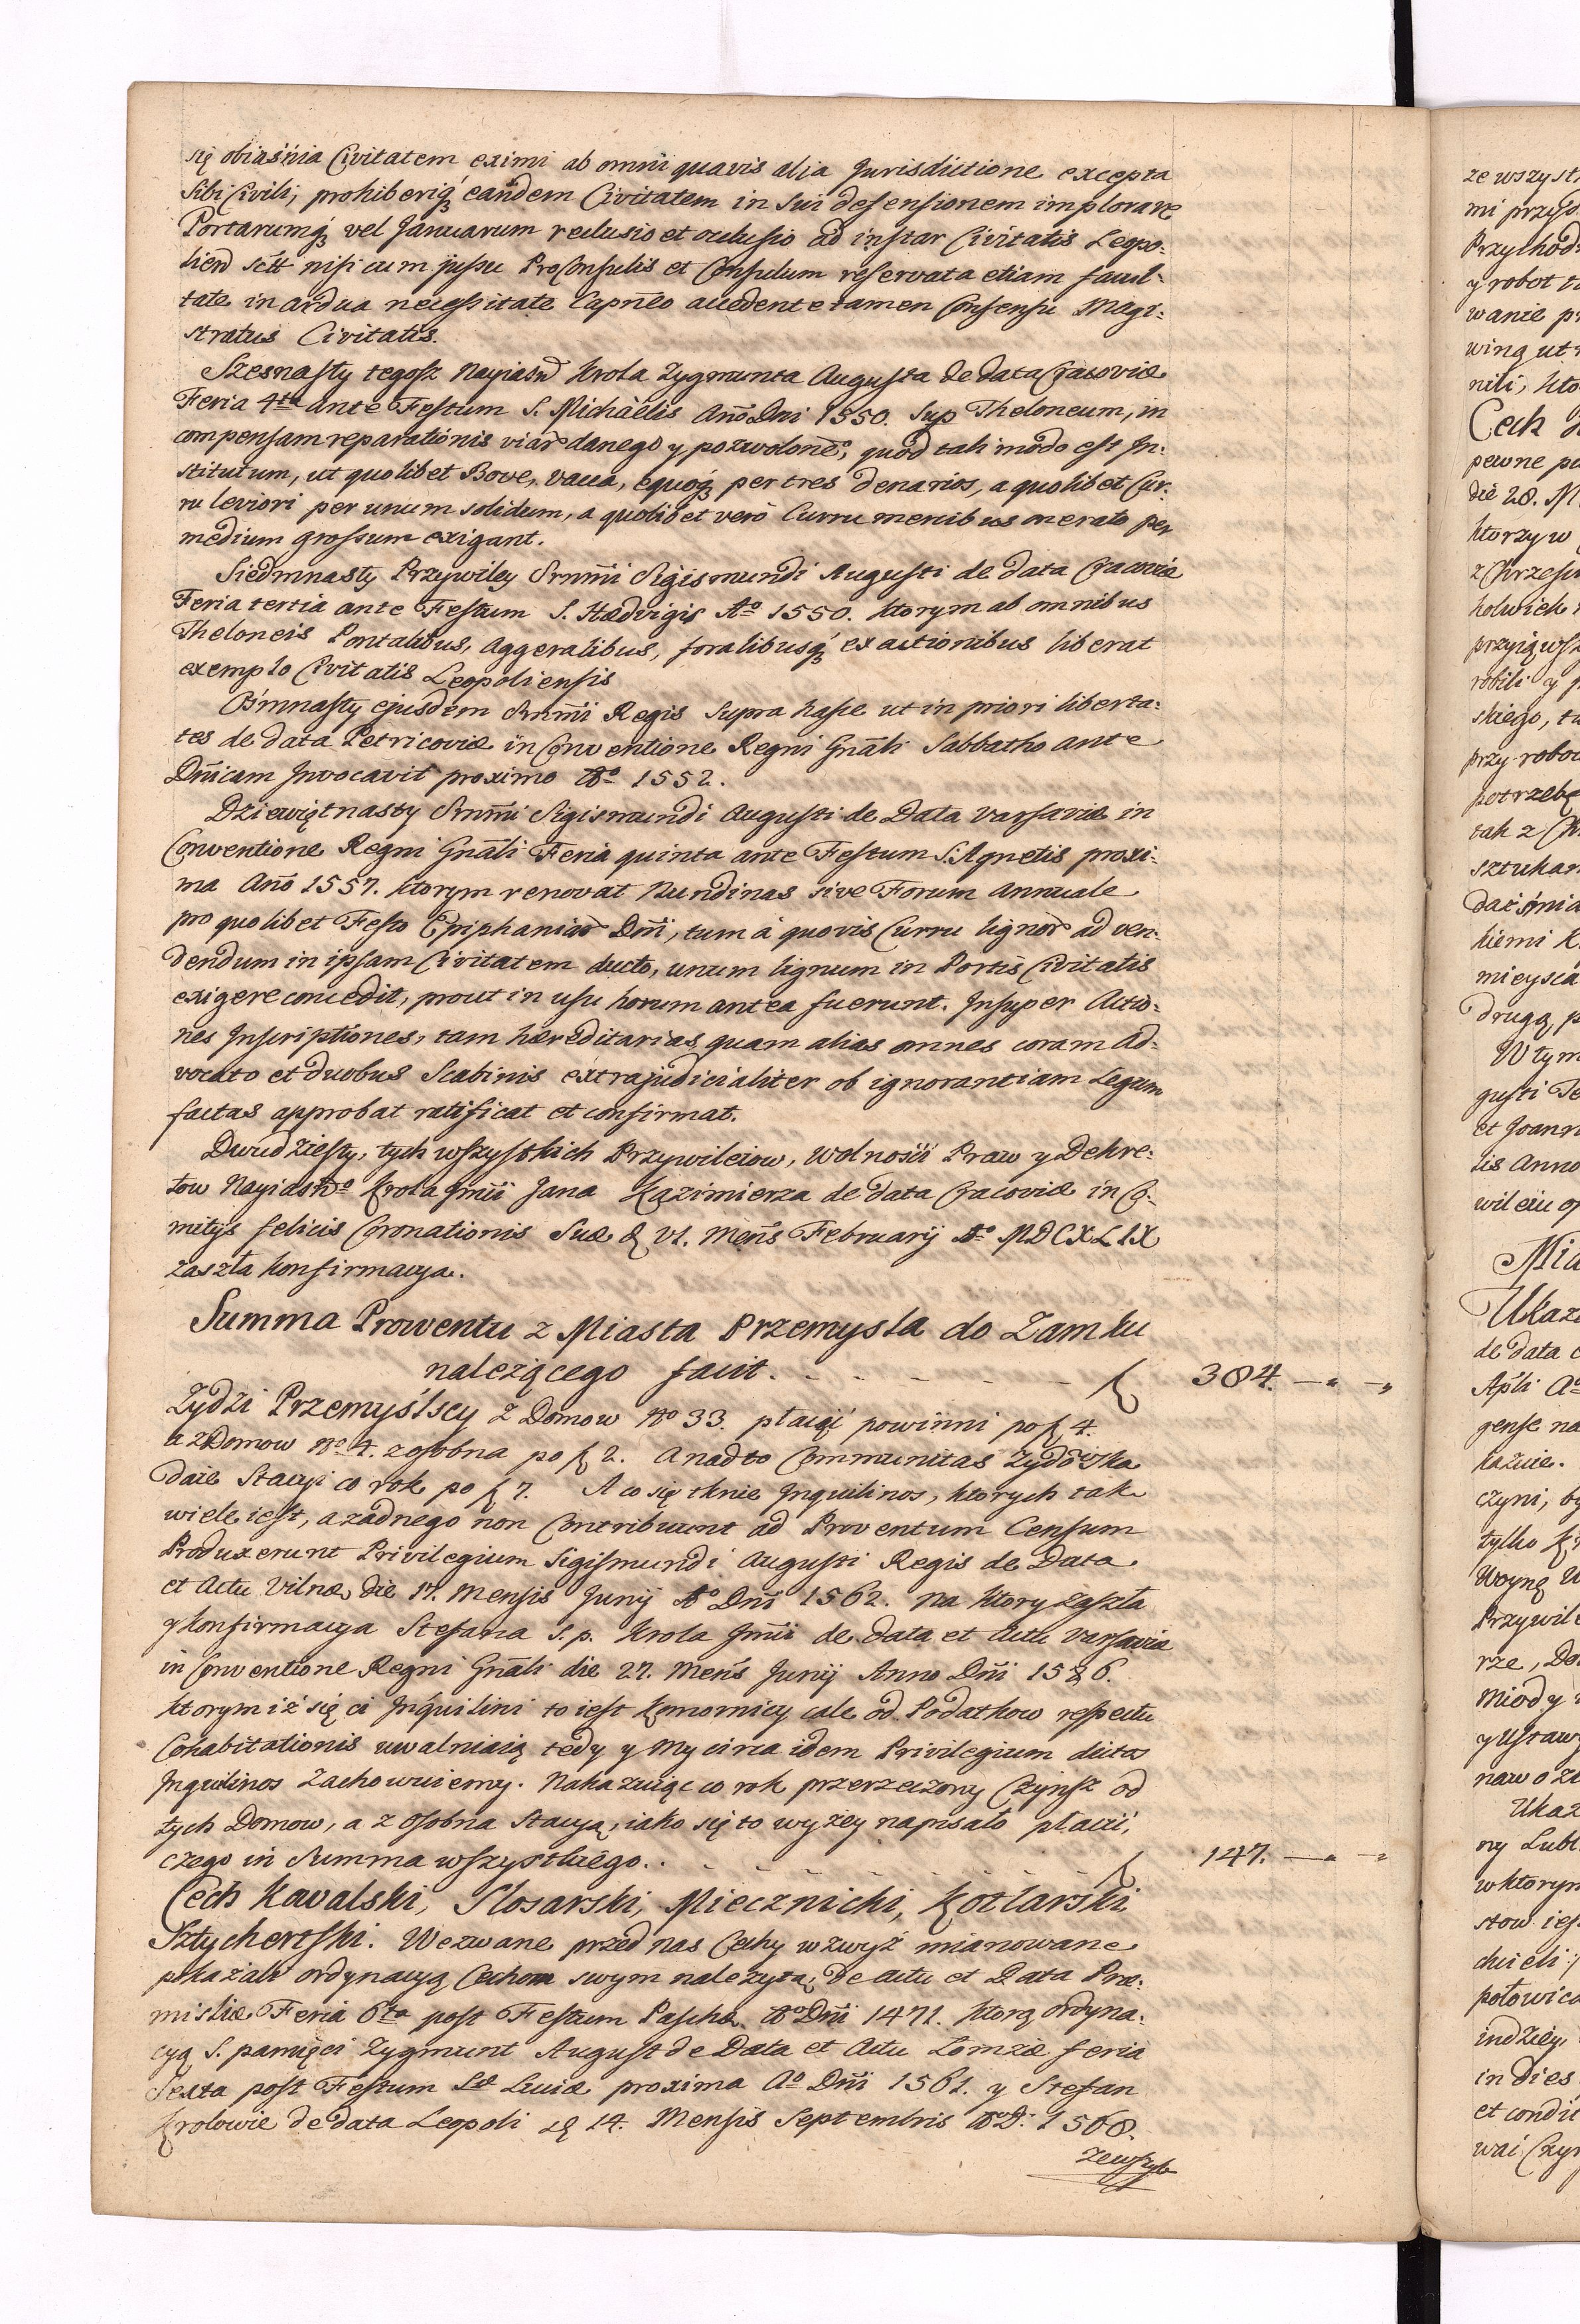 się obiaśnia Civitatem eximi ab omni quavis alia Jurisdictione excepta
sibi Civili, prohiberiq; eandem Civitatem in sui defensionem implorare
Portarumq; vel Januarum reclusio et occlusio ad instar Civitatis Leopo:
lien̄ sctt nisi cum jussu ProConsulis et Consulum reservata etiam facul:
tate in ardua necessitate Capn̄eo accedente tamen Consensu Magi:
stratus Civitatis.
Szesnasty tegosz Nayiasn̄ Krola Zygmunta Augusta de data Cracoviæ
Feria 4ta ante Festum S. Michaelis Año Dni 1550. Sup Theloneum, in
compensam reparationis viar̄ danego y pozwolone°, quod tali modo est In:
stitutum, ut quolibet Bove, vacca, equoq; per tres denarios, a quolibet Cur:
ru leviori per unum solidum, a quolibet vero Curru mercibus onerato per
medium grossum exigant.
Siedmnasty Przywiley Srnm̄i Sigismundi Augusti de data Cracoviæ
Feria tertia ante Festum S. Hædvigis A° 1550. ktorym ab omnibus
Theloneis Pontalibus, Aggeralibus, foralibusq; exactionibus liberat
exemplo Civitatis Leopoliensis
Osmnasty ejusdem Srnm̄i Regis supra hasce ut in priori liberta:
tes de data Petricoviæ in Conventione Regni Gnāli Sabbatho ante
Dn̄icam Invocavit proximo A° 1552.
Dziewiętnasty Srnm̄i Sigismundi Augusti de Data Varsaviæ in
Conventione Regni Gnāli Feria quinta ante Festum S. Agnetis proxi:
ma Año 1557. ktorym renovat Nundinas sive Forum Annuale
pro quolibet Festo Epiphaniar̄ Dn̄i, tum á quovis Curru lignor̄ ad ven:
dendum in ipsam Civitatem ducto, unum lignum in Portis Civitatis
exigere concedit, prout in usu horum antea fuerunt. Insuper Actio:
nes Inscriptiones, tam hæreditarias quam alias omnes coram Ad:
vocato et duobus Scabinis extrajudicialiter ob ignorantiam Legum
factas approbat ratificat et confirmat.
Dwudziesty, tych wszystkich Przywileiow, Wolnosci Praw y Dekre:
tow Nayiasn° Krola Jmci Jana Kazimierza de data Cracoviæ in Co:
mitijs felicis Coronationis Suæ d. VI. Mens̄ Februarij A° MDCXLIX
zaszła konfirmacya.
Summa Prowentu z Miasta Przemysla do Zamku
nalezącego facit. - - - - - - ƒ 384. —„ —„
Zydzi Przemyslscy z Domow N° 33. płacić powinni po ƒ 4.
a z Domow N° 4. z osobna po ƒ 2. A nadto Communitas Zydowska
daie Stacyi co rok po ƒ 7. A co się tknie Inquilinos, ktorych tak
wiele iest, a zadnego non Contribuunt ad Proventum Censum
Produxerunt Privilegium Sigismundi Augusti Regis de Data
et Actu Vilnæ, die 17. Mensis Junij A° Dn̄i 1562. na ktory zaszła
y konfirmacya Stefana S. p. Krola Jmci de data et Actu Varsaviæ
in Conventione Regni Gnāli die 27. Mens̄ Junij Anno Dn̄i 1586.
ktorym iz się ci Inquilini to iest Komornicy cale od Podatkow respectu
Cohabitationis uwalniaią tedy y My circa idem Privilegium dictos
Inquilinos Zachowuiemy. Nakazuiąc co rok przerzeczony Czynsz od
tych Domow, a z osobna Stacyą, iako się to wyzey napisało płacić,
czego in Summa wszystkiego. . - - - - - - ƒ 147. —„ —„
Cech Kowalski, Slosarski, Miecznicki, Kotlarski
Sztychersski. Wezwane przed nas Cechy wzwyz mianowane
pokazali ordynacyą Cechom swym nalezytą, De actu et Data Præ:
misliæ Feria 6ta post Festum Paschæ A° Dn̄i 1471. ktorą ordyna:
cyą S. pamięci Zygmunt August de Data et Actu Lomzæ feria
Sexta post Festum Sæ Luciæ proxima A° Dn̄i 1561. y Stefan
Krolowie de data Leopoli d. 14. Mensis Septembris A° D. 1568.
zewszys